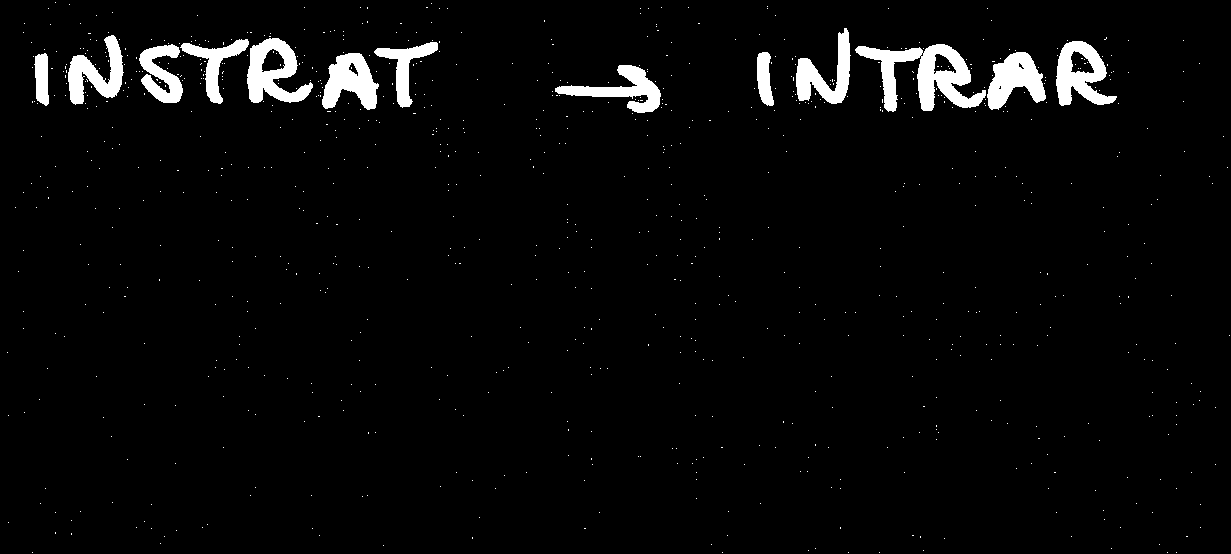 INSTRAT → INTRAR